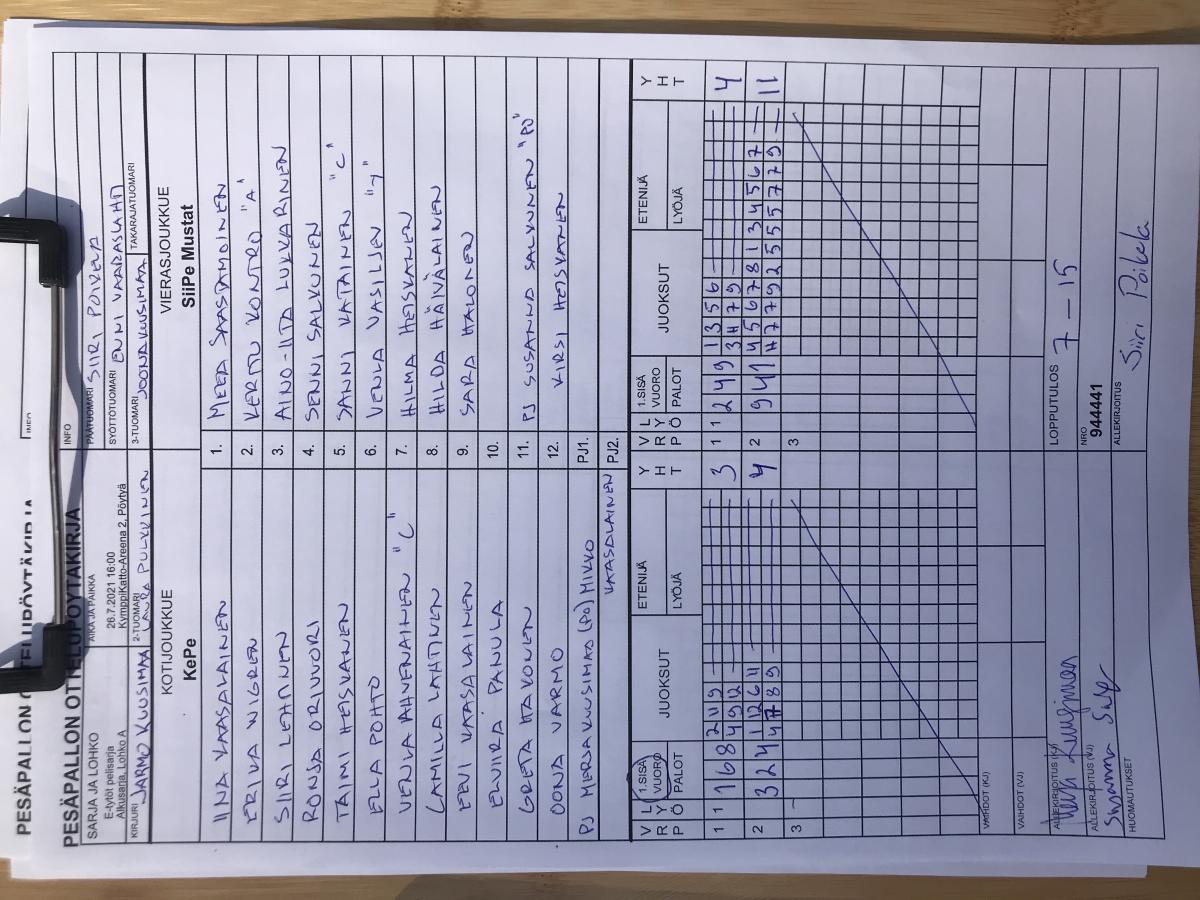 PESÄPALLON OTTELUPÖYTÄKIRJA
PESÄPALLON OTTELUPÖYTÄKIRJA
INFO
SARJA JA LOHKO
E-tytöt pelisarja
Alkusarja, Lohko A
AIKA JA PAIKKA
26.7.2021 16:00
KymppiKatto-Areena 2, Pöytyä
PÄÄTUOMARI SIIRI POIKELA
SYÖTTÖTUOMARI ENNI VAARASLAHTI
KIRJURI JARMO KUUSIMAA
2-TUOMARI LAURA PULKKINEN
3-TUOMARI JOONA KUUSIMAA
TAKARAJATUOMARI
KOTIJOUKKUE
KePe
VIERASJOUKKUE
SiiPe Mustat
IINA VAASALAINEN 1. MEEA SAASTAMOINEN
ERIKA NIGREN 2. KERTTU KONTRO "A"
SIIRI LEHTINEN 3. AINO-IITA LUKKARINEN
RONJA ORIVUORI 4. SENNI SALKUNEN
TAIMI HEISKANEN 5. SANNI VATAINEN "C"
ELLA POHTO 6. VENLA VASILJEV "J"
VENLA AHVENAINEN "C" 7. HILMA HEISKANEN
CAMILLA LAHTINEN 8. HILDA HÄIVÄLAINEN
EEVI VAASALAINEN 9. SARA HALONEN
ELVIIRA PANULA 10.
GRETA HAKONEN 11. PJ SUSANNA SALKUNEN "PO"
OONA VARMO 12. KIRSI HEISKANEN
PJ MERJA KUUSIMAA (PO) MIKKO PJ1.
VAASALAINEN PJ2.
V R P L Y Ö 1.SISÄ VUORO PALOT JUOKSUT ETENIJÄ LYÖJÄ Y H T
V R P L Y Ö 1.SISÄ VUORO PALOT JUOKSUT ETENIJÄ LYÖJÄ Y H T
1 1 1 6 8 2 11 9 3
4 9 12
2 3 2 4 1 12 6 11 4
4 7 8 9
3
1 1 2 4 9 1 3 5 6 4
3 4 7 9
2 9 4 1 4 5 6 7 8 1 3 4 5 6 7 11
4 7 7 9 2 5 5 5 7 7 9
3
VAIHDOT (KJ)
VAIHDOT (VJ)
ALLEKIRJOITUS (KJ)
LOPPUTULOS 7 - 15
ALLEKIRJOITUS (VJ)
NRO
944441
HUOMAUTUKSET
ALLEKIRJOITUS Siiri Poikela